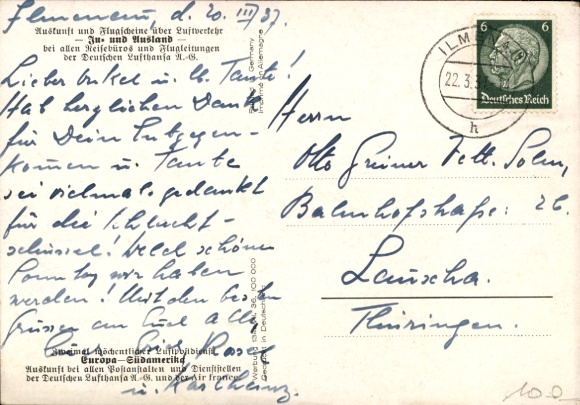 Ilmenau, d. 20. III/37.
Auskunft und Flugscheine über Luftverkehr
— In- und Ausland —
bei allen Reisebüros und Flugleitungen
der Deutschen Lufthansa A.-G.
Lieber Onkel u. lb. Tante!
Hab herzlichen Dank
für Dein Entgegen-
kommen u. Tante
sei vielmals gedankt
für die Schlacht-
schüssel! Welch schönen
Sonntag wir haben
werden! Mit den besten
Grüssen an Euch alle
Erich
u. Karlheinz.
Zweimal wöchentlicher Luftpostdienst
Europa—Südamerika
Auskunft bei allen Postanstalten und Dienststellen
der Deutschen Lufthansa A.-G. und der Air France
Germany
Imprimé en Allemagne
Werbung 36. 100 000
Gedruckt in Deutschland
ILM
22.3.3
h
6 6
Deutsches Reich
Herrn
Otto Greiner Vett. Sohn,
Bahnhofstraße: 26.
Lauscha.
Thüringen.